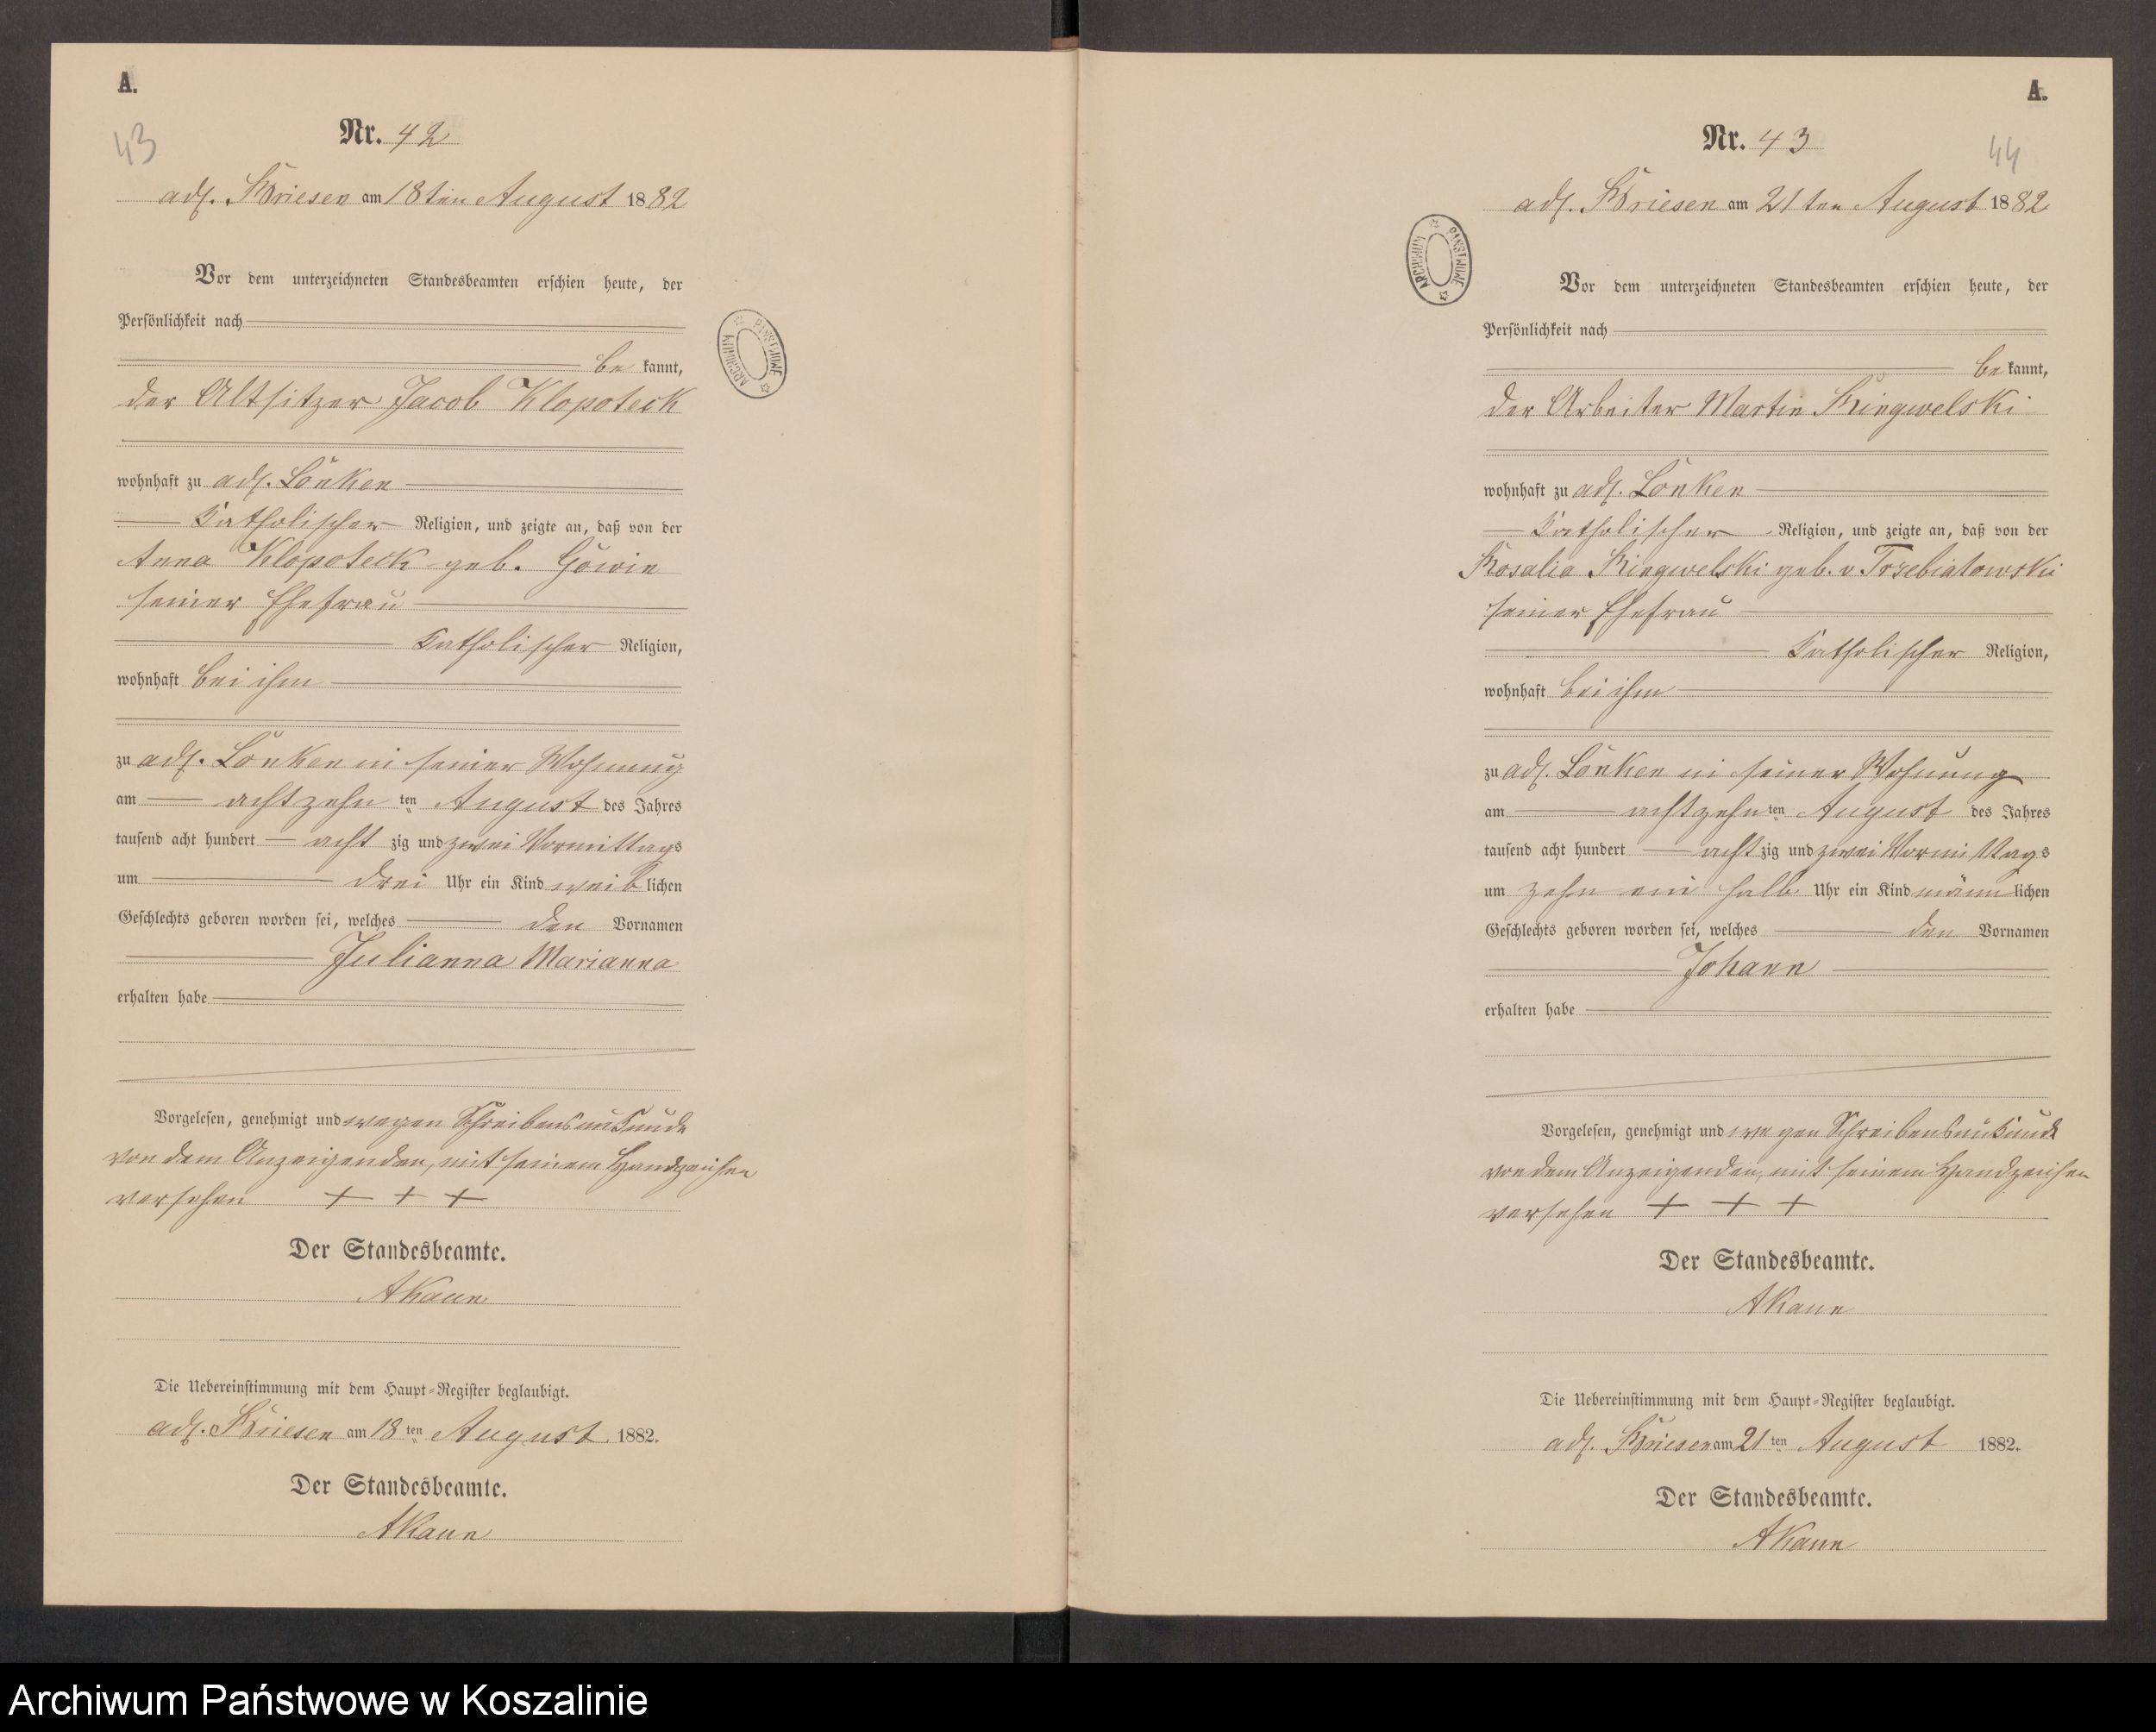 A.
43
Nr. 42
adl. Briesen am 18ten August 1882
Vor dem unterzeichneten Standesbeamten erschien heute, der
Persönlichkeit nach
be kannt,
der Altsitzer Jacob Klopoteck
wohnhaft zu adl. Lonken
Katholischer Religion, und zeigte an, daß von der
Anna Klopoteck geb. Gowin
seiner Ehefrau
Katholischer Religion,
wohnhaft bei ihm
zu adl. Lonken in seiner Wohnung
am achtzehn ten August des Jahres
tausend acht hundert acht zig und zwei Vormittags
um drei Uhr ein Kind weib lichen
Geschlechts geboren worden sei, welches den Vornamen
Julianna Marianna
erhalten habe
Vorgelesen, genehmigt und wegen Schreibensunkunde
von dem Anzeigenden, mit seinem Handzeichen
versehen + + +
Der Standesbeamte.
AKaun
Die Uebereinstimmung mit dem Haupt-Register beglaubigt.
adl. Briesen am 18 ten August 1882.
Der Standesbeamte.
AKaun
ARCHIWUM PAŃSTWOWE
A.
44
Nr. 43
adl. Briesen am 21ten August 1882
Vor dem unterzeichneten Standesbeamten erschien heute, der
Persönlichkeit nach
be kannt,
der Arbeiter Martin Ringwelski
wohnhaft zu adl. Lonken
Katholischer Religion, und zeigte an, daß von der
Rosalia Ringwelski geb. v Trzebiatowski
seiner Ehefrau
Katholischer Religion,
wohnhaft bei ihm
zu adl. Lonken in seiner Wohnung
am achtzehn ten August des Jahres
tausend acht hundert acht zig und zwei Vormittags
um zehn ein halb Uhr ein Kind männ lichen
Geschlechts geboren worden sei, welches den Vornamen
Johann
erhalten habe
Vorgelesen, genehmigt und wegen Schreibensunkunde
von dem Anzeigenden, mit seinem Handzeichen
versehen + + +
Der Standesbeamte.
AKaun
Die Uebereinstimmung mit dem Haupt-Register beglaubigt.
adl. Briesen am 21 ten August 1882.
Der Standesbeamte.
AKaun
ARCHIWUM PAŃSTWOWE
Archiwum Państwowe w Koszalinie